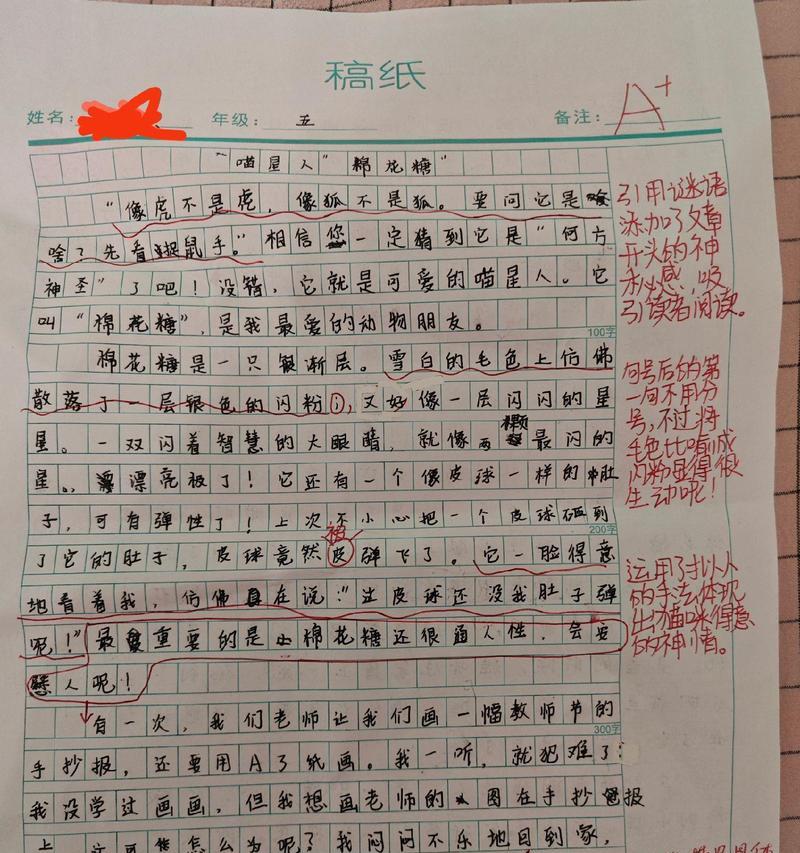 稿纸
姓名：
年级：五
备注：A+
“喵星人”“棉花糖”
“像虎不是虎，像狐不是狐。要问它是
啥？先看捉鼠手。”相信您一定猜到它是“何方
神圣”了吧！没错，它就是可爱的喵星人。它
叫“棉花糖”，是我最爱的动物朋友。
100字
棉花糖是一只银渐层。雪白的毛色上仿佛
散落了一层银色的闪粉，又好像一层闪闪的星
星。一双闪着智慧的大眼睛，就像两颗最闪的
星星。漂亮极了！它还有一个像皮球一样的肚
子，可有弹性了！上次不小心把一个皮球砸到
200字
了它的肚子，皮球竟然被弹飞了。它一脸得意
地看着我，仿佛在说：“这皮球还没我肚子弹
呢！”最重要的是棉花糖还很通人性，会安
慰人呢！
有一次，我们老师让我们画一幅教师节的
300字
手抄报，还要用A3纸画。我一听，就犯难了：
我没学过画画，但我想画老师的图在手抄报
上，这可怎么办呢？我闷闷不乐地回到家，
引用谜语
添加了文章
开头的神
秘感，吸
引读者阅读。
句号后的第
一句不用分
号，不过将
毛色比喻成
闪粉显得很
生动呢！
运用了拟人
的手法体现
出猫咪得意
的神情。